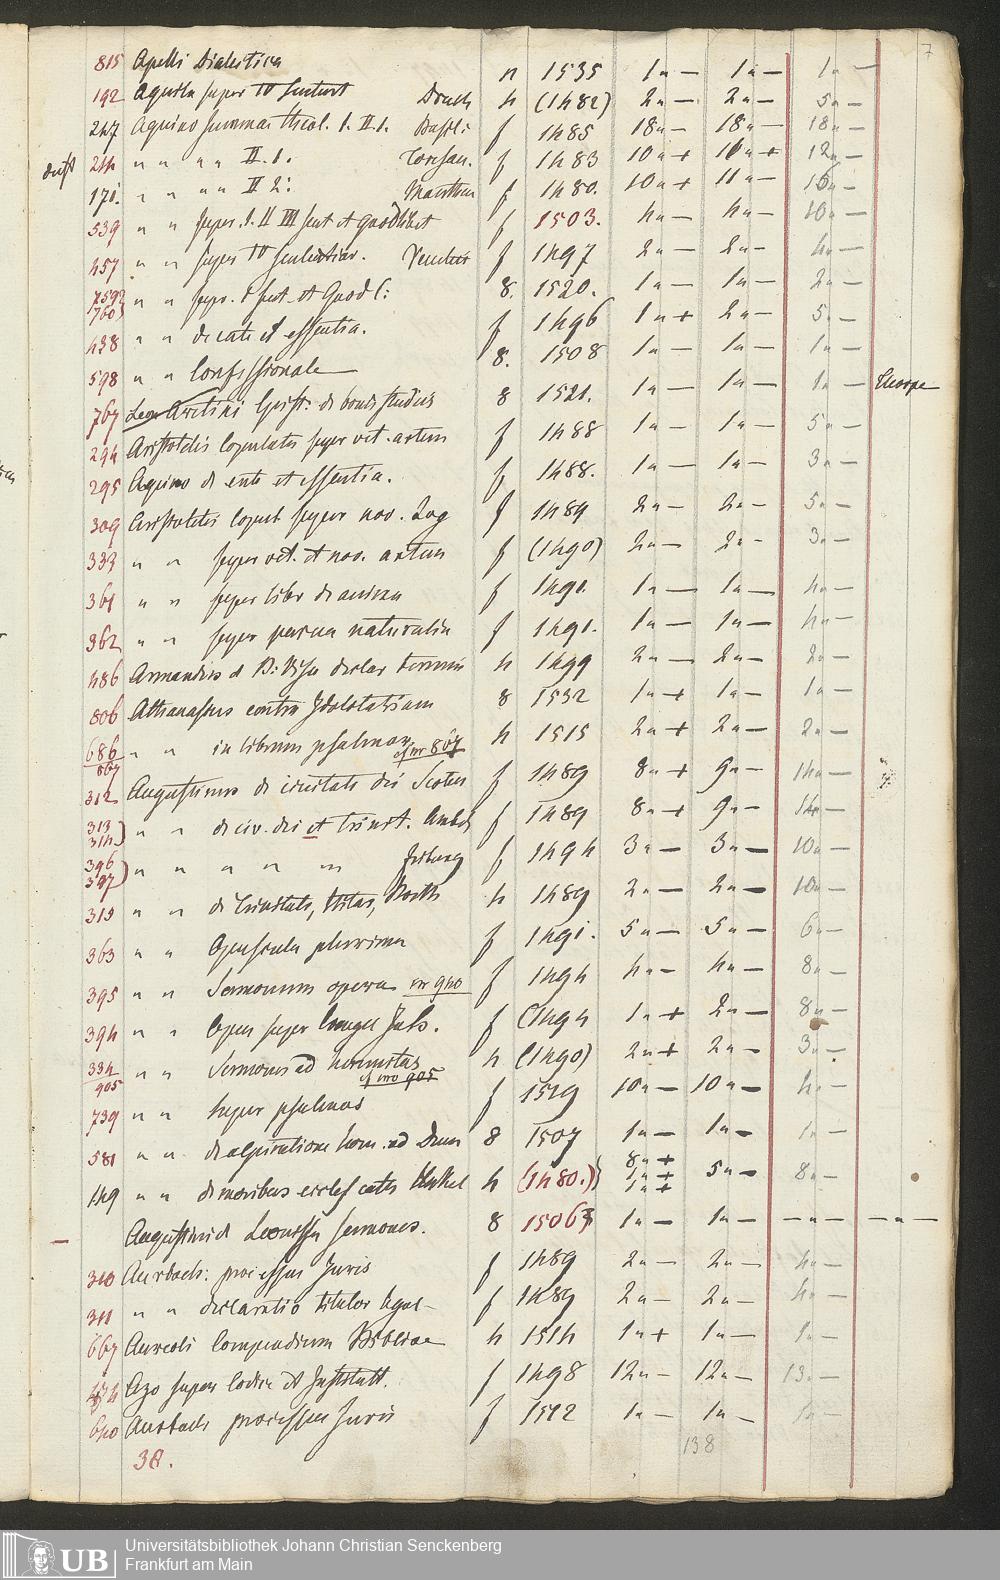 7
815 Apelli Dialectica n 1535 1 „ — 1 „ — 1 „ —
192 Aquila super IV Sentent Drach h (1482) 2 „ — 2 „ — 5 „ —
247 Aquino summa theol. I. II. 1. Basil: f 1485 18 „ — 18 „ — 18 „ —
214 „ „ „ „ II. 1. Toresan. f 1483 10 „ + 10 „ + 12 „ —
170. „ „ „ „ II 2: f 1480. 10 „ + 11 „ — 16 „ —
539 „ „ super. I. II III sent et quodlibet f 1503. 4 „ — 4 „ — 10 „ —
457 „ „ super IV sententiar. f 1497 2 „ — 2 „ — 4 „ —
759 760 „ „ supr. I sent. et Quodl: 8. 1520. 1 „ — 1 „ — 2 „ —
438 „ „ de ente et essentia. f 1496 1 „ + 2 „ — 5 „ —
598 „ „ Confessionale 8. 1508 1 „ — 1 „ — 1 „ —
767 Leon Aretini Epist: de bonis studiis 8 1521. 1 „ — 1 „ — 1 „ — Thorpe
294 Aristotelis copulata super vet. artem f 1488 1 „ — 1 „ — 5 „ —
295 Aquino de ente et essentia. f 1488. 1 „ — 1 „ — 3 „ —
309 Aristotelis copul super nov. Log f 1489 2 „ — 2 „ — 5 „ —
333 „ „ super vet. et nov. artem f (1490) 2 „ — 2 „ — 3 „ —
361 „ „ super libr de anima f 1491. 1 „ — 1 „ — 4 „ —
362 „ „ super parva naturalia f 1491. 1 „ — 1 „ — 4 „ —
486 Armandus d B: Visu declar terminor h 1499 2 „ — 2 „ — 2 „ —
806 Athanasius contra Idolatriam 8 1532 1 „ + 1 „ — 1 „ —
686 867 „ „ in librum psalmor cf nr 867 h 1515 2 „ + 2 „ — 2 „ —
312 Augustinus de civitate dei f 1489 8 „ + 9 „ — 14 „ —
313 314 „ „ de civ. dei et trinit. Amb f 1489 8 „ + 9 „ — 14 „ —
396 397 „ „ „ „ „ Friburg f 1494 3 „ — 3 „ — 10 „ —
315 „ „ de trinitate, h 1489 2 „ — 2 „ — 10 „ —
363 „ „ Opuscula plurima f 1491. 5 „ — 5 „ — 6 „ —
395 „ „ Sermonum opera nr 940 f 1494 4 „ — 4 „ — 8 „ —
394 „ „ Opus super Evangel Joh. f (1494 1 „ + 2 „ — 8 „ —
334 905 „ „ Sermones ad heremitas cf nro 905 h (1490) 2 „ + 2 „ — 3 „ —
739 „ „ super psalmos f 1519 10 „ — 10 „ — 4 „ —
581 „ „ de aspiratione hom. ad Deum 8 1507 1 „ — 1 „ — 1 „ —
149 „ „ de moribus eccles cath h (1480.) 8 „ + 1 „ + 1 „ + 5 „ — 8 „ —
— Augustini d Leonissa sermones. 8 1503 1 „ — 1 „ — — „ — — „ —
310 Aurbach: processus Juris f 1489 2 „ — 2 „ — 4 „ —
311 „ „ declaratio titulor legal— f 1489 2 „ — 2 „ — 4 „ —
667 Aureoli Compendium Bibliae h 1514 1 „ + 1 „ — 1 „ —
474 Azo super codice et Institut. f 1498 12 „ — 12 „ — 13 „ —
640 Aurbach processus Juris f 1512 1 „ — 1 „ — 1 „ —
38. 138
UB Universitätsbibliothek Johann Christian Senckenberg
Frankfurt am Main